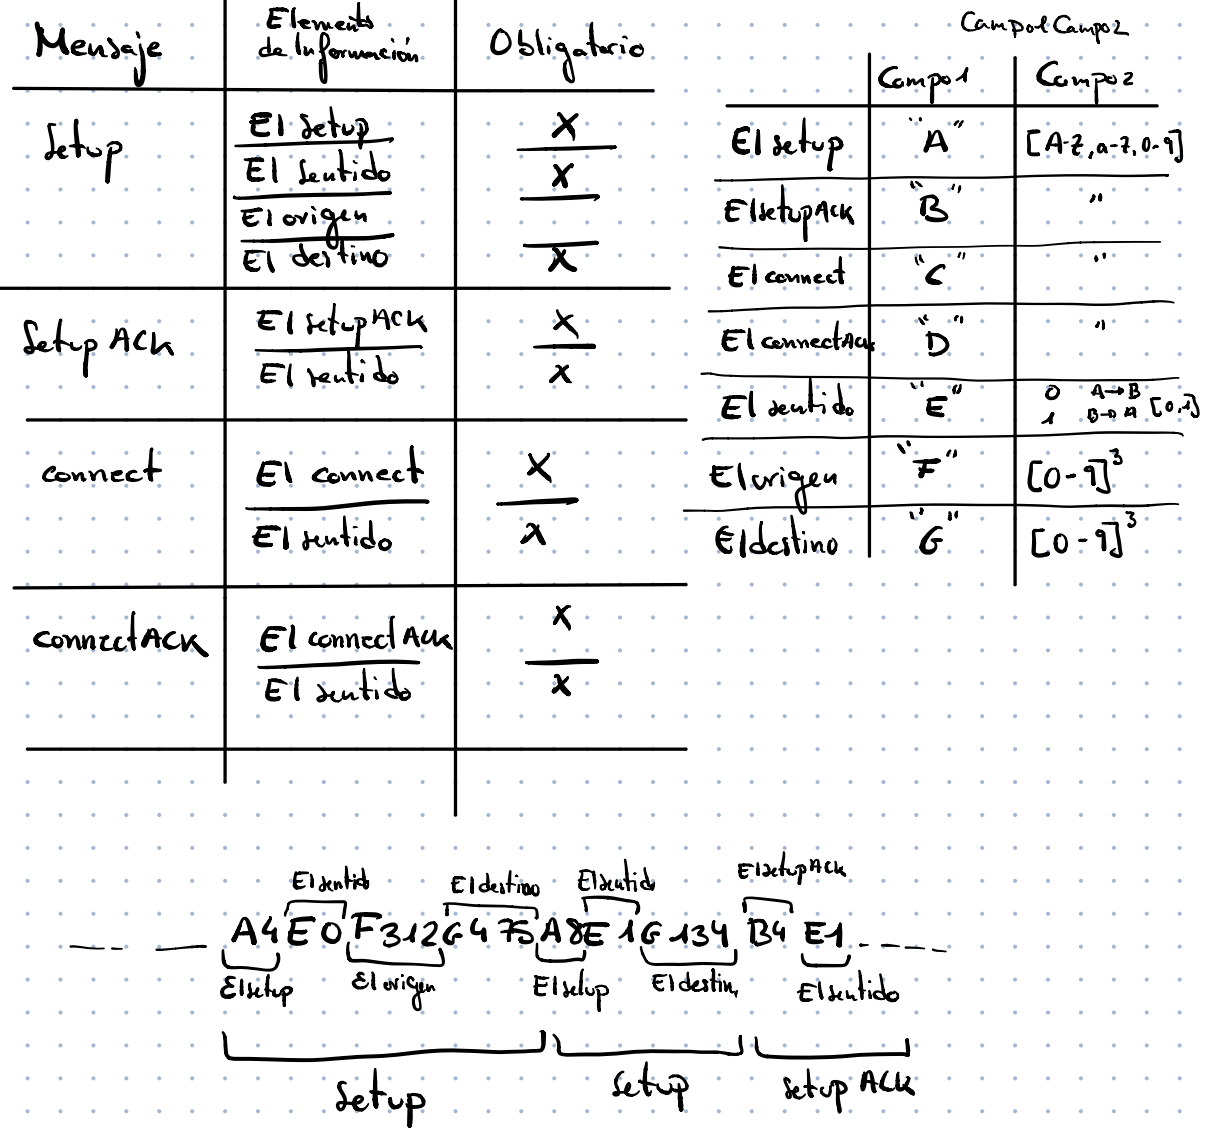 Mensaje
Elemento de Información
Obligatorio
Setup
EI Setup
X
EI Sentido
X
EI origen
EI destino
X
Setup ACK
EI SetupACK
X
EI sentido
X
connect
EI connect
X
EI sentido
X
connectACK
EI connectACK
X
EI sentido
X
Campo1 Campo2
Campo1
Campo2
EI setup
"A"
[A-Z, a-z, 0-9]
EI setupACK
"B"
"
EI connect
"C"
"
EI connectACK
"D"
"
EI sentido
"E"
0 A→B
1 B→A
[0,1]
EI origen
"F"
[0-9]³
EI destino
"G"
[0-9]³
EI sentid
EI destino
EI sentid
EI setupACK
A4E0F312G475A8E1G134 B4 E1
EI setup
EI origen
EI setup
EI destin
EI sentido
Setup
Setup
Setup ACK